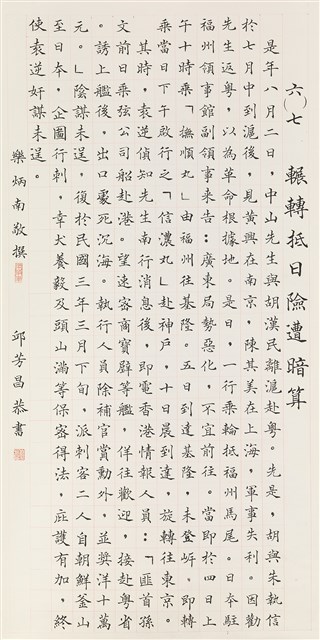 六○七　輾轉抵日險遭暗算
是年八月二日，中山先生與胡漢民離滬赴粵。先是，胡與朱執信
於七月中到滬後，見黃興在南京，陳其美在上海，軍事失利。因勸
先生返粵，以為革命根據地。是日，一行乘輪抵福州馬尾。日本駐
福州領事館副領事來告：廣東局勢惡化，不宜前往。當即於四日上
午十時乘「撫順丸」由福州往基隆。五日到達基隆，未登岸，即轉
乘當日下午啟行之「信濃丸」赴神戶，十日晨到達，旋轉往東京。
其時，袁逆偵知先生南行消息後，即電香港情報人員：「匪首孫
文前日乘弦公司船赴港。望速密商寶辟等艦，佯往歡迎，接赴粵省
。誘上艦後，出口處死沉海。執行人員除補官賞勳外，並獎洋十萬
元。」陰謀未逞，復於民國三年三月下旬，派刺客二人自朝鮮釜山
至日本，企圖行刺，幸犬養毅及頭山滿等保密得法，庇護有加，終
使袁逆奸謀未逞。
樂炳南敬撰　邱芳昌恭書